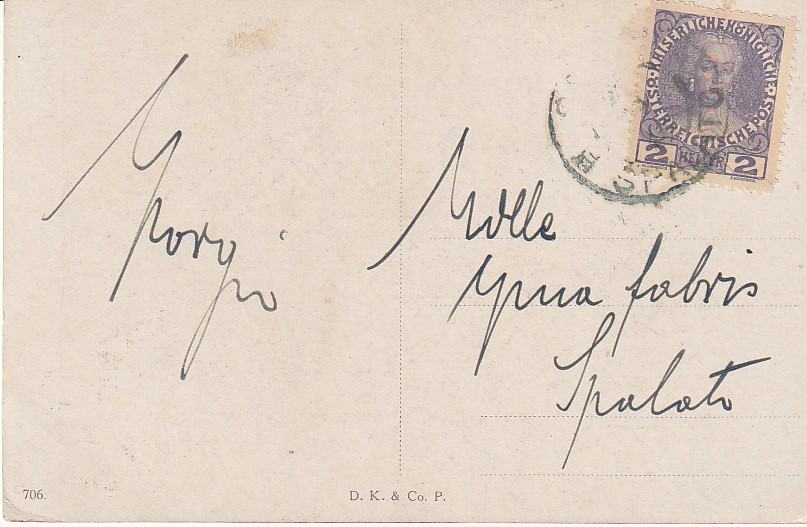 Giorgio
KAISERLICHE KÖNIGLICHE
ÖSTERREICHISCHE POST
2 HELLER 2
Mlle
Yma Fabris
Spalato
706.
D. K. & Co. P.